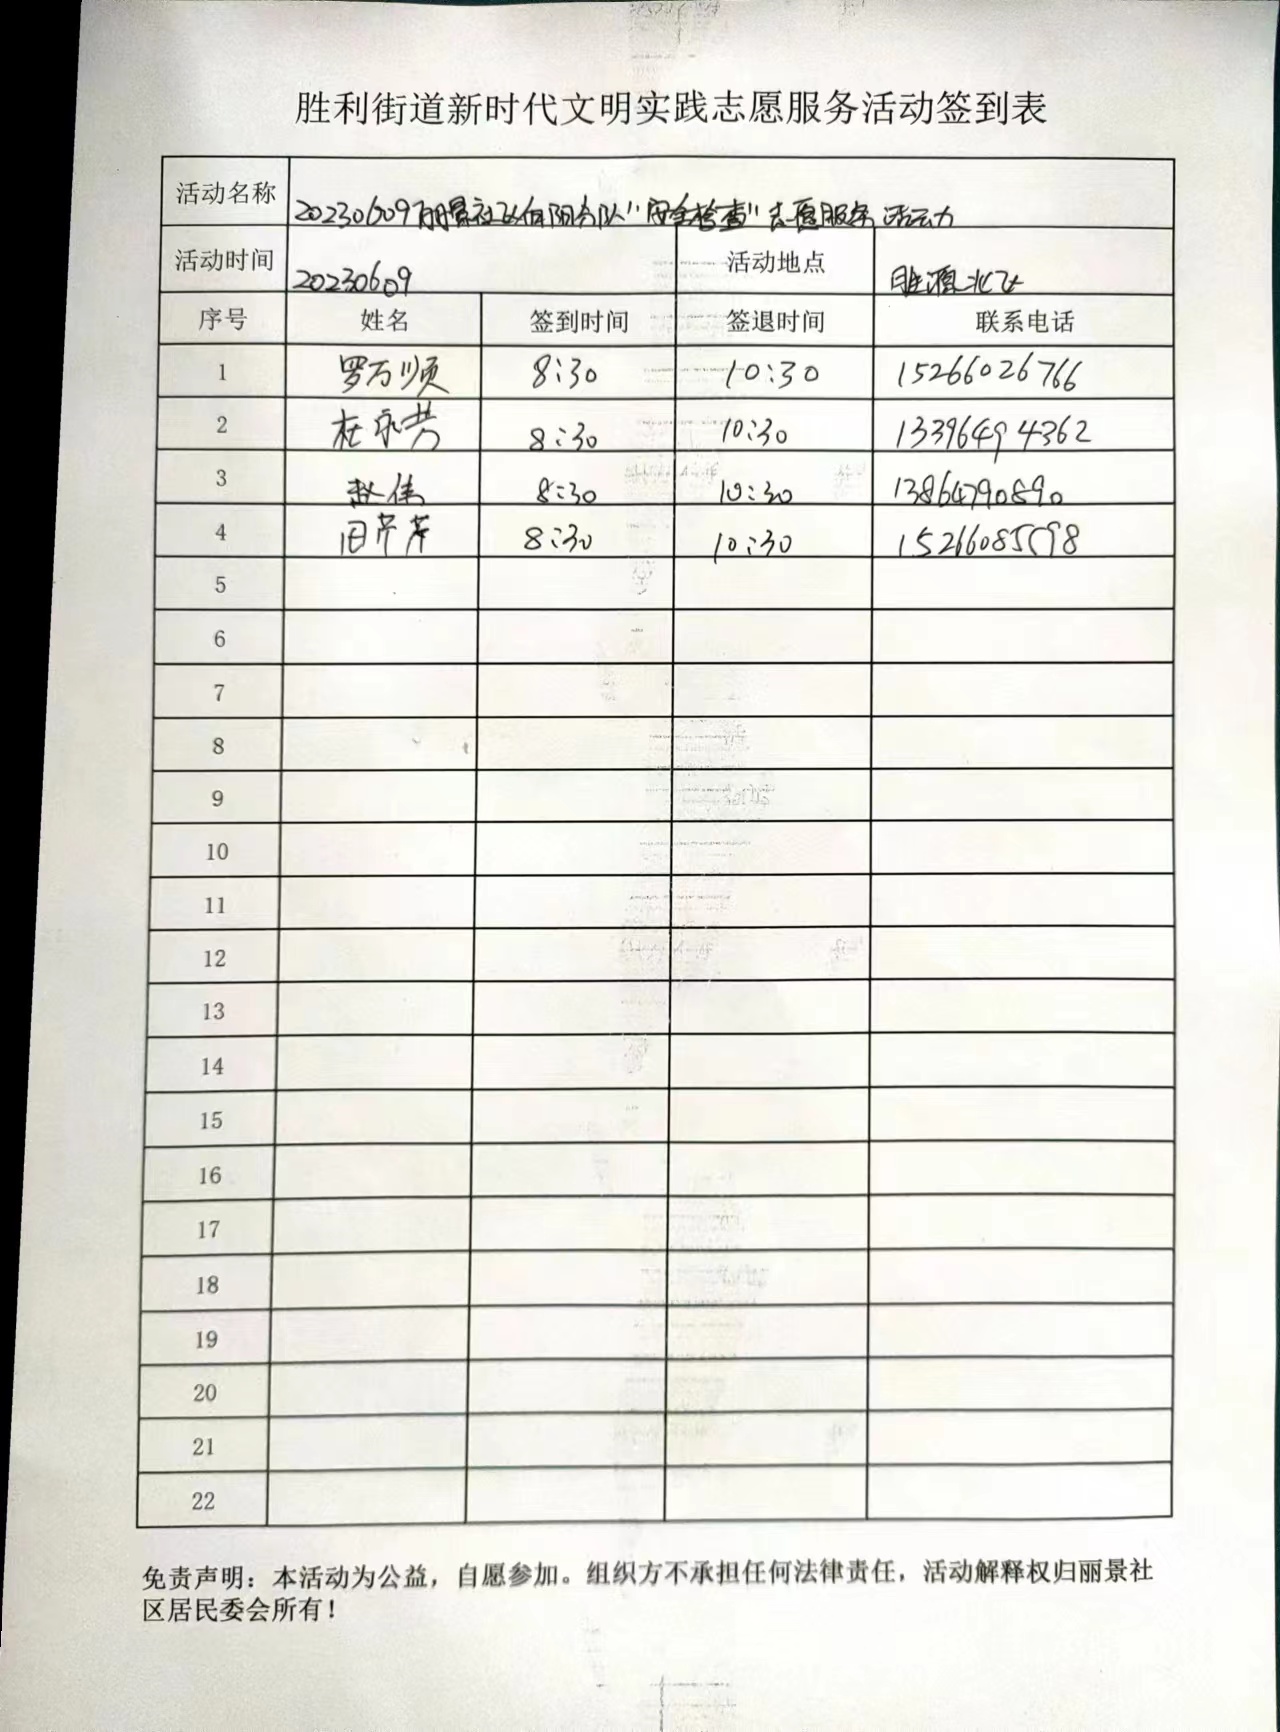 胜利街道新时代文明实践志愿服务活动签到表
活动名称 20230609丽景社区向阳分队"安全检查"志愿服务活动
活动时间 20230609 活动地点 胜源北区
序号 姓名 签到时间 签退时间 联系电话
1 罗万顺 8:30 10:30 15266026766
2 杜永芳 8:30 10:30 13396494362
3 赵伟 8:30 10:30 13864790890
4 田芹芹 8:30 10:30 15266085598
5
6
7
8
9
10
11
12
13
14
15
16
17
18
19
20
21
22
免责声明：本活动为公益，自愿参加。组织方不承担任何法律责任，活动解释权归丽景社
区居民委会所有！